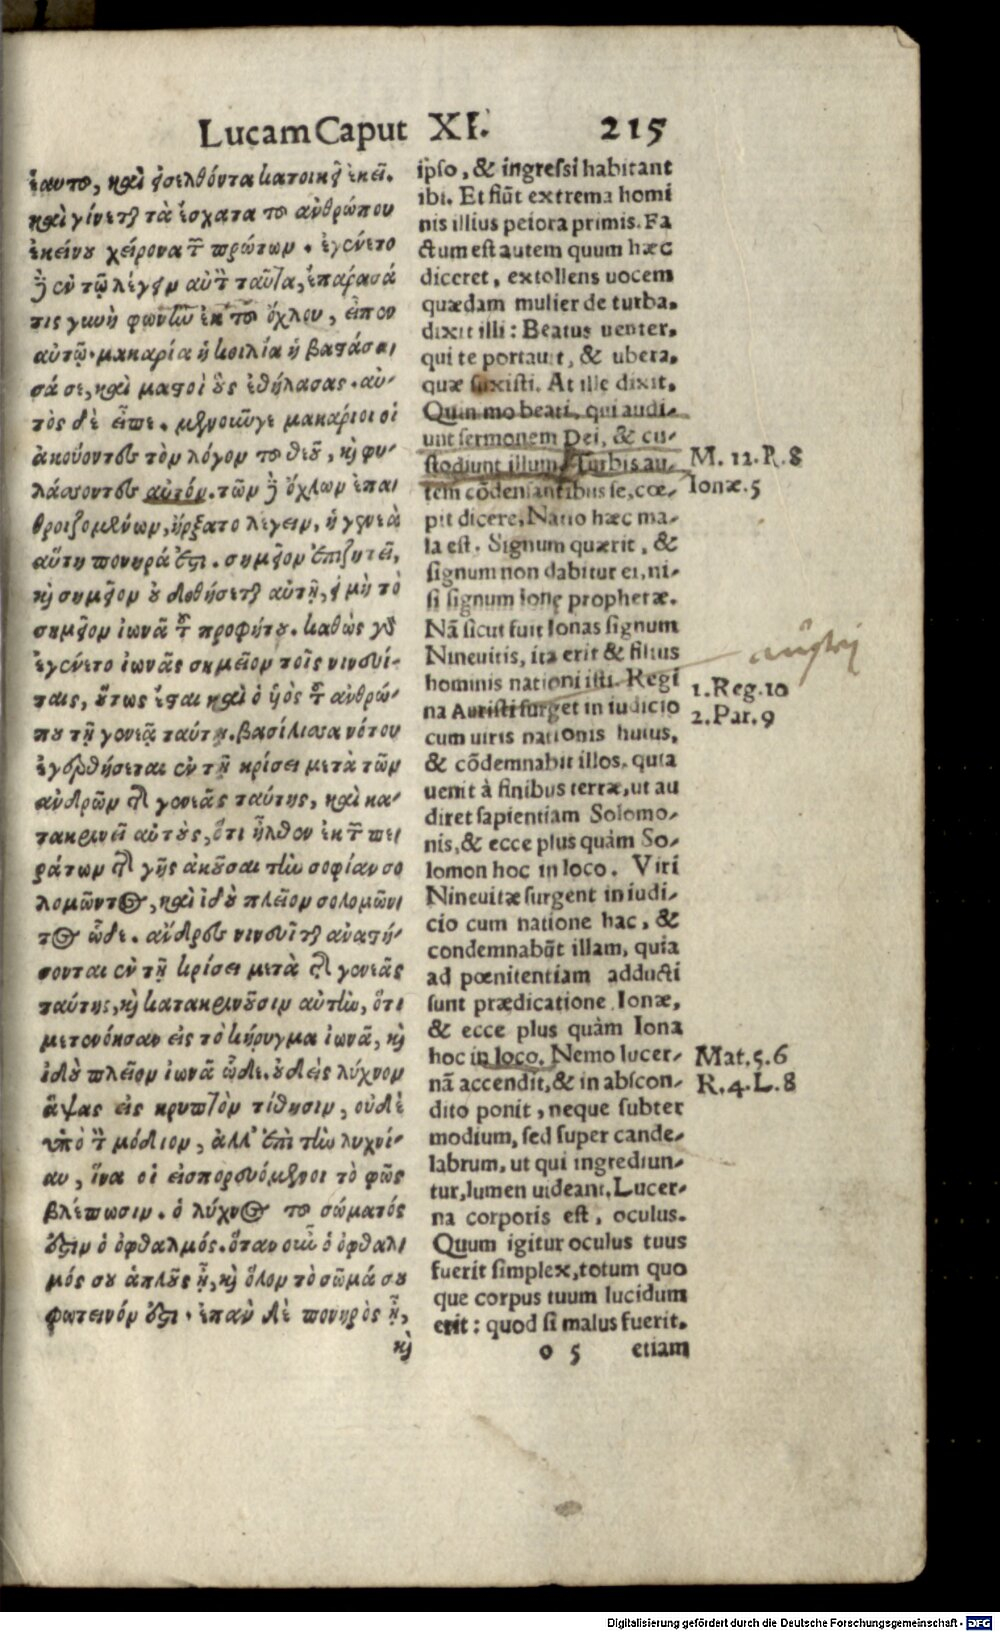 Lucam Caput XI. 215
ἑαυτοῦ, καὶ εἰσελθόντα κατοικεῖ ἐκεῖ.
καὶ γίνεται τὰ ἔσχατα τοῦ ἀνθρώπου
ἐκείνου χείρονα τῶν πρώτων. ἐγένετο
δὲ ἐν τῷ λέγειν αὐτὸν ταῦτα, ἐπάρασά
τις γυνὴ φωνὴν ἐκ τοῦ ὄχλου, εἶπεν
αὐτῷ. μακαρία ἡ κοιλία ἡ βαστάσα/
σά σε, καὶ μαστοὶ οὓς ἐθήλασας. αὐ/
τὸς δὲ εἶπε. μενοῦνγε μακάριοι οἱ
ἀκούοντες τὸν λόγον τοῦ θεοῦ, καὶ φυ/
λάσσοντες αὐτόν. τῶν δὲ ὄχλων ἐπαι
θροιζομένων, ἤρξατο λέγειν, ἡ γενεὰ
αὕτη πονηρά ἐστι. σημεῖον ἐπιζητεῖ,
καὶ σημεῖον οὐ δοθήσεται αὐτῇ, εἰ μὴ τὸ
σημεῖον ἰωνᾶ τοῦ προφήτου. καθὼς γὰρ
ἐγένετο ἰωνᾶς σημεῖον τοῖς νινευί-
ταις, οὕτως ἔσται καὶ ὁ υἱὸς τοῦ ἀνθρώ/
που τῇ γενεᾷ ταύτῃ. βασίλισσα νότου
ἐγερθήσεται ἐν τῇ κρίσει μετὰ τῶν
ἀνδρῶν τῆς γενεᾶς ταύτης, καὶ κα/
τακρινεῖ αὐτοὺς, ὅτι ἦλθεν ἐκ τῶν πε/
ράτων τῆς γῆς ἀκοῦσαι τὴν σοφίαν σο
λομῶντος, καὶ ἰδοὺ πλεῖον σολομῶν/
τος ὧδε. ἄνδρες νινευῖται ἀναστή/
σονται ἐν τῇ κρίσει μετὰ τῆς γενεᾶς
ταύτης, καὶ κατακρινοῦσιν αὐτὴν, ὅτι
μετενόησαν εἰς τὸ κήρυγμα ἰωνᾶ, καὶ
ἰδοὺ πλεῖον ἰωνᾶ ὧδε. οὐδεὶς λύχνον
ἅψας εἰς κρυπτὸν τίθησιν, οὐδὲ
ὑπὸ τὸν μόδιον, ἀλλ' ἐπὶ τὴν λυχνί/
αν, ἵνα οἱ εἰσπορευόμενοι τὸ φῶς
βλέπωσιν. ὁ λύχνος τοῦ σώματός
ἐστιν ὁ ὀφθαλμός. ὅταν οὖν ὁ ὀφθαλ/
μός σου ἁπλοῦς ᾖ, καὶ ὅλον τὸ σῶμά σου
φωτεινόν ἐστι. ἐπὰν δὲ πονηρὸς ᾖ,
καὶ
ipso, & ingressi habitant
ibi. Et fiūt extrema homi
nis illius peiora primis. Fa
ctum est autem quum hæc
diceret, extollens uocem
quædam mulier de turba,
dixit illi: Beatus uenter,
qui te portauit, & ubera,
quæ suxisti. At ille dixit.
Quin mo beati, qui audi/
unt sermonem Dei, & cu/
stodiunt illum. Turbis au/
tem cōdensantibus se, cœ/
pit dicere, Natio hæc ma/
la est. Signum quærit, &
signum non dabitur ei, ni/
si signum Ionę prophetæ.
Nā sicut fuit Ionas signum
Nineuitis, ita erit & filius
hominis nationi isti. Regi
na Austri surget in iudicio
cum uiris nationis huius,
& cōdemnabit illos, quia
uenit à finibus terræ, ut au
diret sapientiam Solomo/
nis, & ecce plus quàm So/
lomon hoc in loco. Viri
Nineuitæ surgent in iudi/
cio cum natione hac, &
condemnabūt illam, quia
ad pœnitentiam adducti
sunt prædicatione Ionæ,
& ecce plus quàm Iona
hoc in loco. Nemo lucer/
nā accendit, & in abscon/
dito ponit, neque subter
modium, sed super cande/
labrum, ut qui ingrediun/
tur, lumen uideant. Lucer/
na corporis est, oculus.
Quum igitur oculus tuus
fuerit simplex, totum quo
que corpus tuum lucidum
erit: quod si malus fuerit,
o 5 etiam
M. 12. R. 8
Ionæ. 5
austrj
1. Reg. 10
2. Par. 9
Mat. 5. 6
R. 4. L. 8
Digitalisierung gefördert durch die Deutsche Forschungsgemeinschaft - DFG